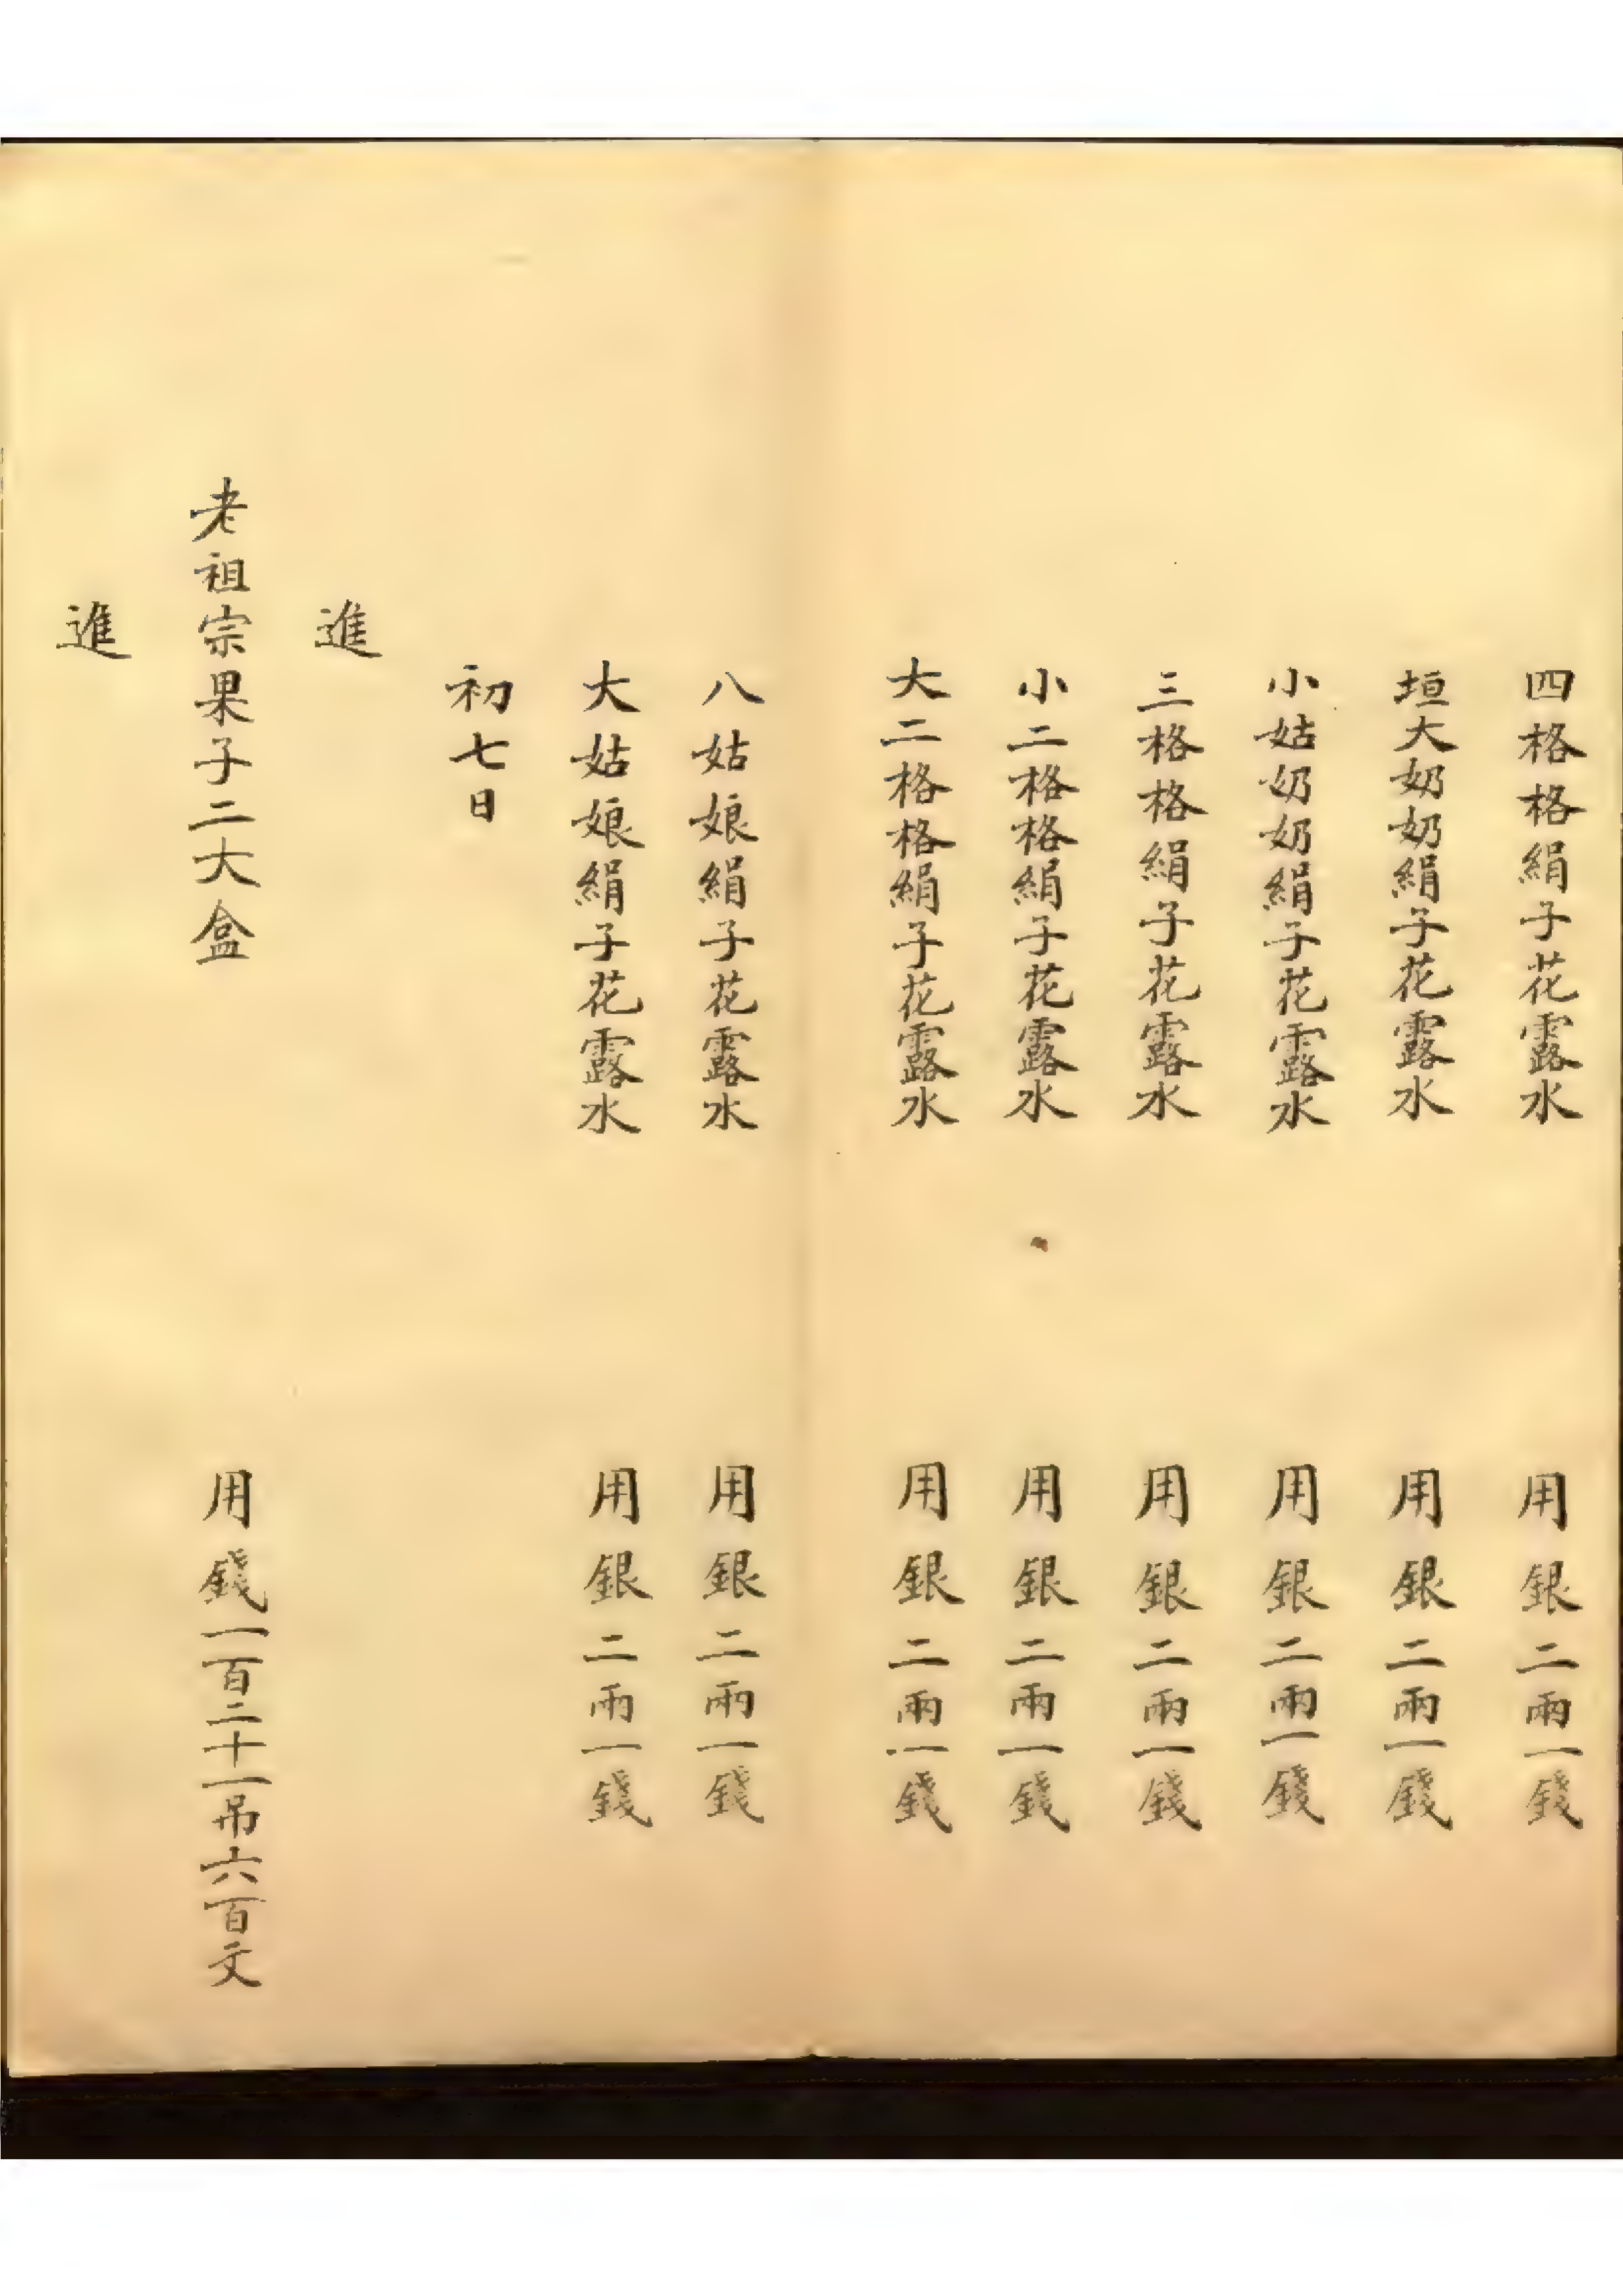 四格格絹子花露水 用銀二兩一錢
垣大奶奶絹子花露水 用銀二兩一錢
小姑奶奶絹子花露水 用銀二兩一錢
三格格絹子花露水 用銀二兩一錢
小二格格絹子花露水 用銀二兩一錢
大二格格絹子花露水 用銀二兩一錢
八姑娘絹子花露水 用銀二兩一錢
大姑娘絹子花露水 用銀二兩一錢
初七日
進
老祖宗果子二大盒 用錢一百二十一吊六百文
進